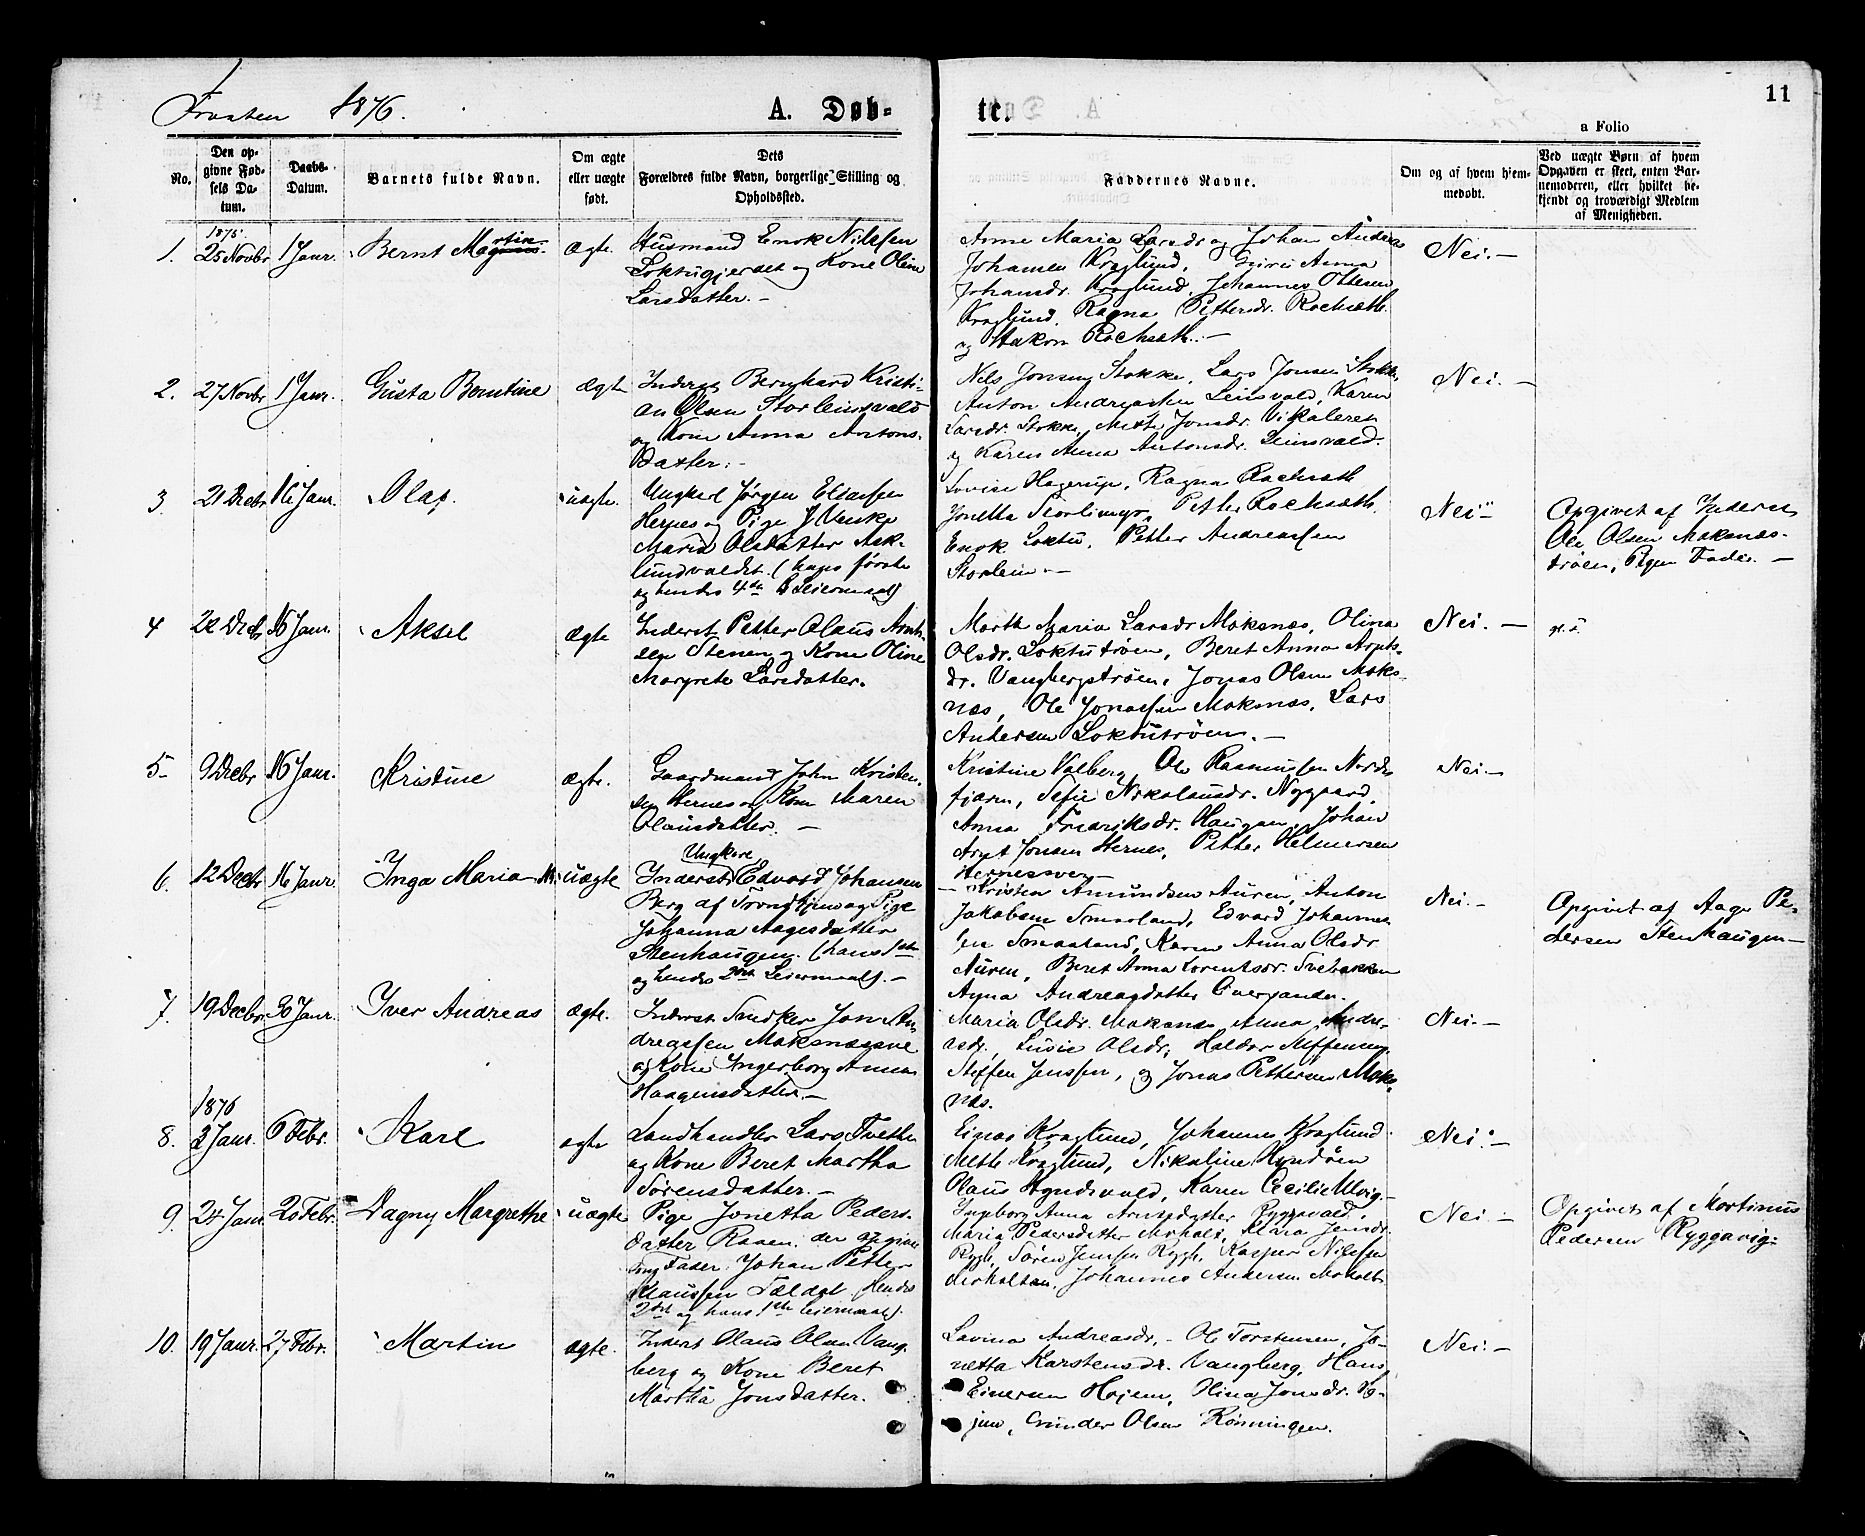 Frosten 1876.
A. Døb-
te.
11
a Folio
No.
Den op-
givne Fød-
sels Da-
tum.
Daabs-
Datum.
Barnets fulde Navn.
Om ægte
eller uægte
født.
Dets
Forældres fulde Navn, borgerlige Stilling og
Opholdssted.
Faddernes Navne.
Om og af hvem hjem-
medøbt.
Ved uægte Børn af hvem
Opgaven er skeet, enten Bar-
nemoderen, eller hvilket be-
kjendt og troværdigt Medlem
af Menigheden.
1875
1. 25 Novbr 1 Janr. Bernt Martin ægte.
Husmand Enok Nilssen
Loktugjerdet og Kone Oline
Larsdatter. -
Anne Maria Larsdr og Johan Andreas
Johansen Kraglund, Anna
Johansdr. Kraglund, Johannes Ottesen
Kraglund, Ragna Pettersdr. Rochseth.
og Hakon Rochseth. -
Nei. -
2. 27 Novbr 1 Janr. Gusta Berntine ægte
Inderst Bernhard Kristi-
an Olsen Storleinsvald
og Kone Anna Antons-
datter. -
Nels Jonsen Stokke, Lars Jonsen Stokke,
Anton Andreassen Leinsvald, Karen
Larsdr. Stokke, Mette Jonsdr. Vikaleret
og Karen Anna Antonsdr. Leinsvald.
Nei. -
3. 21 Decbr 16 Janr. Olaf. uægte.
Ungkarl Jørgen Eliassen
Hernes og Pige
Maria Olsdatter Ask-
lundvaldet. (hans første
og hendes 4de Leiermaal)
Lovise Hagerup, Ragna Rochseth
Jonetta Storleimyr, Petter Rochseth,
Enok Loktu, Petter Andreassen
Storlein. -
Nei -
Opgivet af Inderst
Ole Olsen Moksnes-
trøen, Pigens Fader. -
4 22 Decbr 16 Janr. Aksel ægte
Inderst Petter Olaus Arnt-
sen Stenen og Kone Oline
Margrete Larsdatter.
Marth Maria Larsdr Moksnæs, Olina
Olsdr. Loktutrøen, Beret Anna Arnts-
dr. Vangbergstrøen, Jonas Olsen Moks-
næs, Ole Jonassen Moksnæs, Lars
Andersen Loktutrøen. -
Nei. -
5 9 Decbr 16 Janr. Kristine ægte.
Gaardmand John Kristen-
sen Hernes og Kone Maren
Olausdatter. -
Kristine Valberg, Ole Rasmussen Nord-
fjæren, Sefie Nikolausdr. Nygaard,
Anna Fredriksdr. Haugan, Johan
Arnt Jonsen Hernes, Petter Helmersen
Hernessven -
Nei. -
6. 12 Decbr 16 Janr. Inga Maria uægte
Ungkarl
Inderst Edvard Johansen
Berg af Trondhjem og Pige
Johanna Aagesdatter
Stenhaugen. (hans 1ste
og hendes 2det Leiermaal). -
Kristen Amundsen Auren, Anton
Jakobsen Smaaland, Edvard Johannes-
sen Smaaland, Karen Anna Olsdr
Auren, Beret Anna Lorentsdr. Svebakken
Anna Andreasdatter Overganden.
Nei. -
Opgivet af Aage Pe-
dersen Stenhaugen -
7. 19 Decbr 30 Janr. Iver Andreas ægte.
Inderst Snedker Jon An-
dreassen Moksnæssve
og Kone Ingerborg Anna
Haagensdatter. -
Maria Olsdr. Moksnæs, Anna Andre-
asdr, Lusie Olsdr, Haldor Steffensen,
Steffen Jenssen, og Jonas Pettersen Moks-
næs.
Nei. -
1876
8. 2 Janr. 6 Febr. Karl ægte
Landhandler Lars Tveter
og Kone Beret Martha
Sørensdatter. -
Einar Kraglund, Johannes Kraglund
Mette Kraglund, Nikoline Hyndøen
Olaus Hyndsvald, Karen Cecilie Ulvig -
Nei. -
9. 24 Janr. 20 Febr. Dagny Margrethe uægte
Pige Jonetta Peders-
datter Raaen. den opgivne
Fader. Johan Petter
Klaussen Fældal. (Hendes
2det og hans 1ste Leiermaal).
Ingborg Anna Arntsdatter Ryggvald,
Maria Pedersdatter Moholt, Klara Jensdr.
Rygh, Søren Jenssen Rygh, Kasper Nilssen
Johannes Andersen Moholt.
Nei. -
Opgivet af Mortinus
Pedersen Ryggavig. -
10. 19 Janr. 27 Febr. Martin ægte.
Inderst Olaus Olsen Vang-
berg og Kone Beret
Martha Jonsdatter.
Lavina Andreasdr, Ole Torstensen, Jo-
netta Karstensdr. Vangberg, Hans
Einersen Hojem, Olina Jonsdr. Ho-
jem, Gunder Olsen Rønningen.
Nei. -